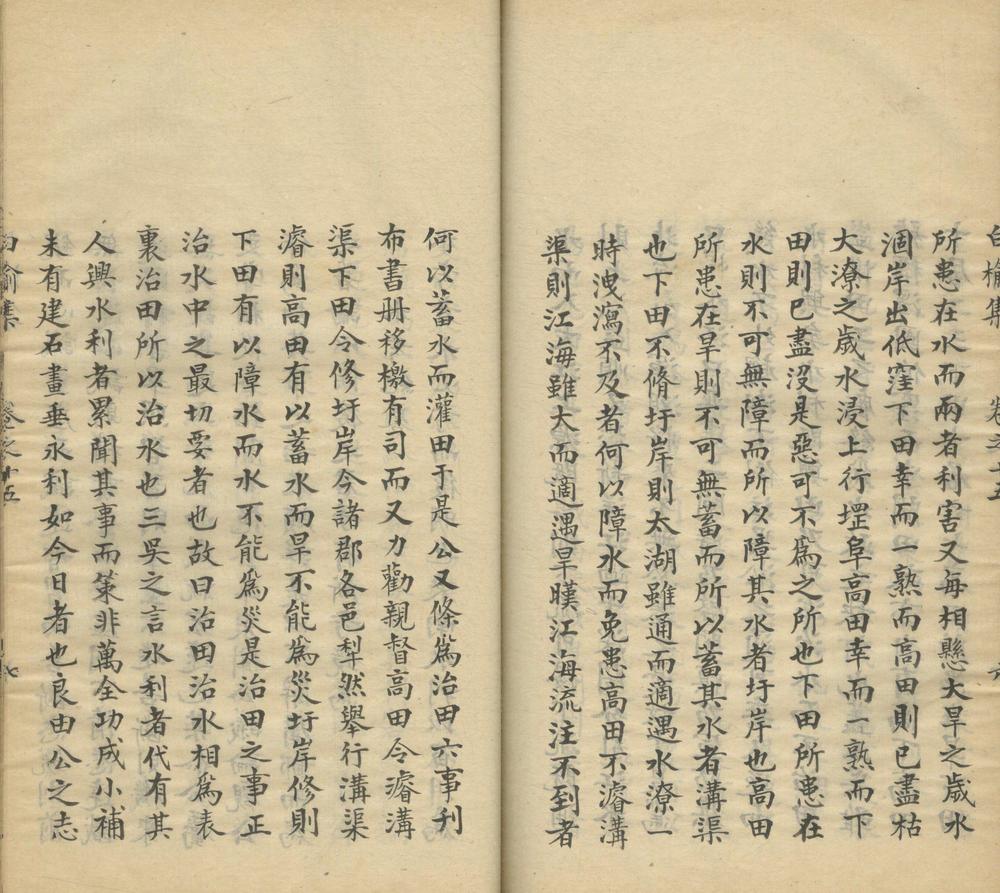 白榆集 卷之十五
所患在水而兩者利害又每相懸大旱之歲水
涸岸出低窪下田幸而一熟而高田則已盡枯
大潦之歲水浸上行堽阜高田幸而一熟而下
田則已盡沒是惡可不為之所也下田所患在
水則不可無障而所以障其水者圩岸也高田
所患在旱則不可無蓄而所以蓄其水者溝渠
也下田不脩圩岸則太湖雖通而適遇水潦一
時洩瀉不及者何以障水而免患高田不濬溝
渠則江海雖大而適遇旱暵江海流注不到者
何以蓄水而灌田于是公又條為治田六事刊
布書册移檄有司而又力勸親督高田令濬溝
渠下田令修圩岸今諸郡各邑犁然舉行溝渠
濬則高田有以蓄水而旱不能為災圩岸修則
下田有以障水而水不能為災是治田之事正
治水中之最切要者也故曰治田治水相為表
裏治田所以治水也三吳之言水利者代有其
人興水利者累聞其事而策非萬全功成小補
未有建石畫垂永利如今日者也良由公之志
白榆集 卷之十五 七